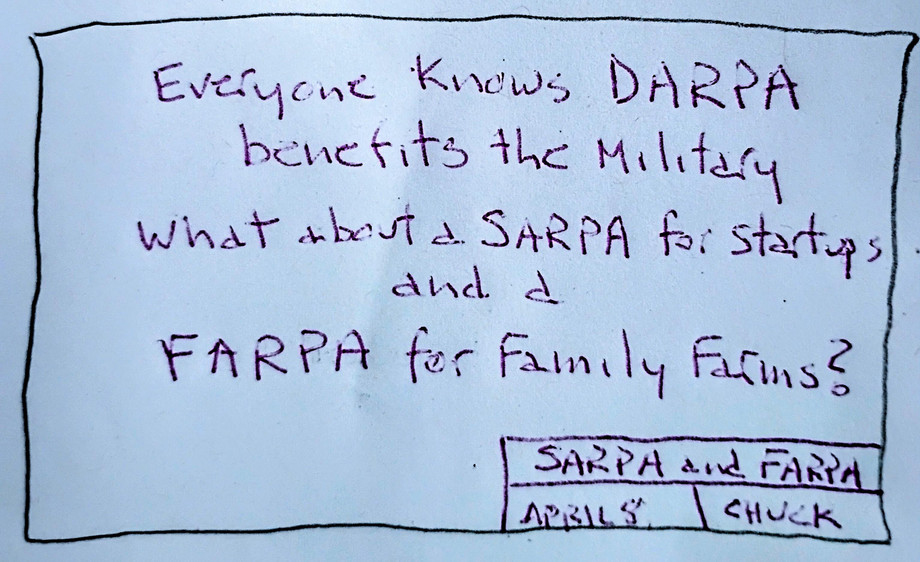 Everyone Knows DARPA
benefits the Military
What about a SARPA for startups
and a
FARPA for Family Farms?
SARPA and FARPA
APRIL 8
CHUCK